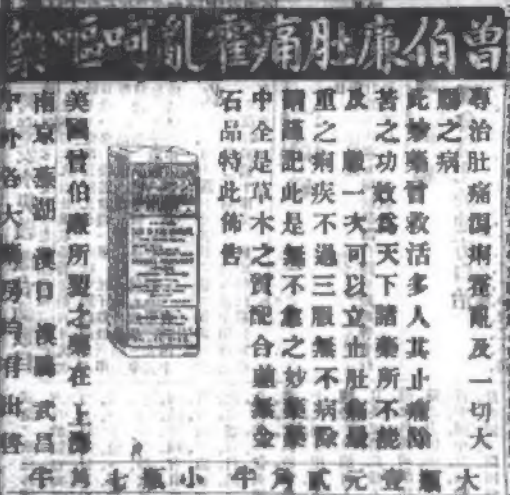 曾伯廉肚痛霍亂呵嘔藥
專治肚痛瀉痢霍亂及一切大
腸之病
此妙藥曾救活多人其止痛除
苦之功效為天下諸藥所不能
及 一次可以立止肚痛
重之痢疾不過三服無不病除
記此是無不愈之妙藥
中全是草木之質配合並無金
石品特此佈告
美國曾伯廉所製之藥在上海
南京 蕪湖 漢口 武昌
中外各大藥房均有出售
大瓶壹元貳角半 小瓶七角半